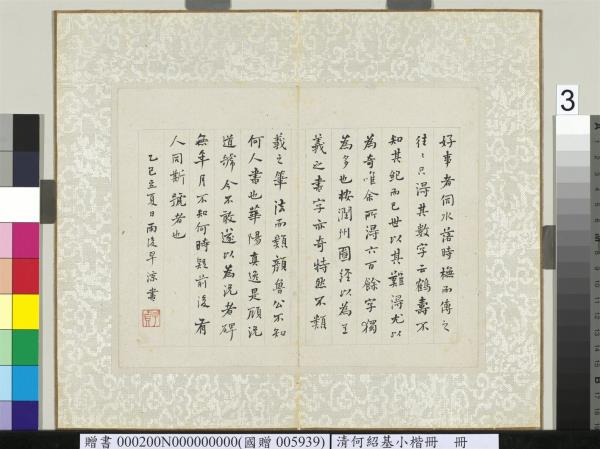 好事者伺水落時模而傳之
往〻只得其數字云鶴壽不
知其紀而已世以其難得尤以
為奇唯余所得六百餘字獨
為多也按潤州圖經以為王
羲之書字亦奇特然不類
羲之筆法而類顏魯公不知
何人書也華陽真逸是顧況
道號今不敢遂以為況者碑
無年月不知何時疑前後有
人同斯號者也
乙巳立夏日雨後早涼書
3
贈書 000200N000000000(國贈 005939) 清何紹基小楷冊 冊